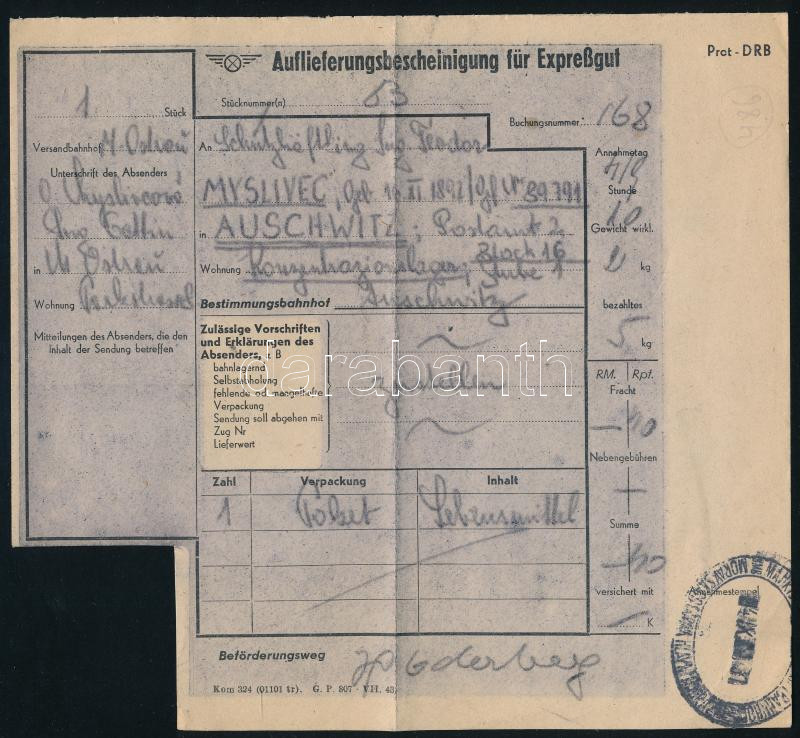 Auflieferungsbescheinigung für Expreßgut
Prot - DRB
1 Stück
Stücknummer(n) 53
Buchungsnummer: 168
984
Versandbahnhof M. Ostrau
Unterschrift des Absenders
in M. Ostrau
Wohnung
Mitteilungen des Absenders, die den
Inhalt der Sendung betreffen
An Schutzhäftling Ing. Teodor
MYSLIVEC, geb. XI 1892/Gef. Nr 39.791
in AUSCHWITZ; Postamt 2
Wohnung Konzentrazionslager; Block 16
Stube 1
Bestimmungsbahnhof Auschwitz
Annahmetag
4/9
Stunde
10
Gewicht wirkl.
2 kg
bezahltes
5 kg
Zulässige Vorschriften
und Erklärungen des
Absenders, z. B
bahnlagernd
Selbstabholung
fehlende od. mangelhafte
Verpackung
Sendung soll abgehen mit
Zug Nr
Lieferwert
zustellen
darabanth
RM. Rpf.
Fracht
— 40
Nebengebühren
—
Summe
— 40
versichert mit
— K
Zahl Verpackung Inhalt
1 Paket Lebensmittel
Annahmestempel
Beförderungsweg Oderberg
Kom 324 (01101 tr). G. P. 807 - VII. 43.